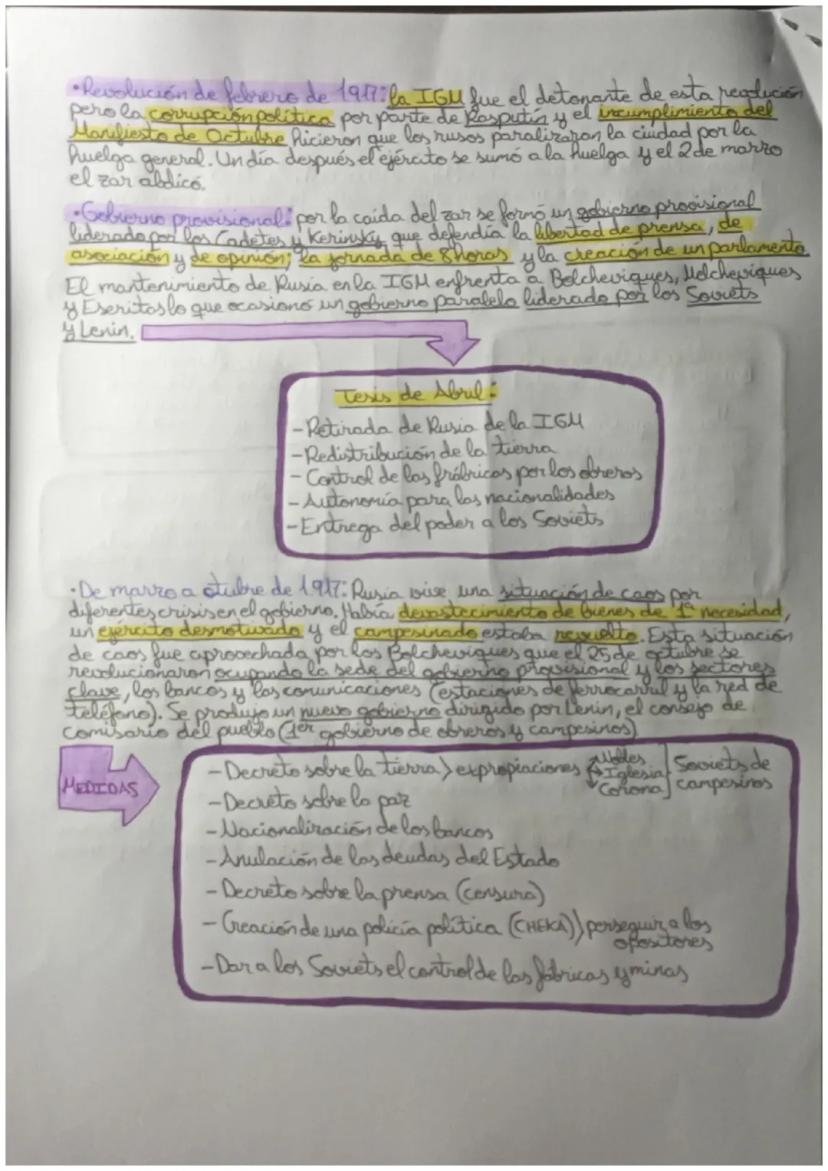 ·Revolución de febrero de 1917: la IGM fue el detonante de esta revolución
pero la corrupción política por parte de Rasputín y el incumplimiento del
Manifiesto de Octubre hicieron que los rusos paralizaran la ciudad por la
huelga general. Un día después el ejército se sumó a la huelga y el 2 de marzo
el zar abdicó.
·Gobierno provisional: por la caída del zar se formó un gobierno provisional
liderado por los Cadetes y Kerinsky que defendía la libertad de prensa, de
asociación y de opinión; la jornada de 8 horas y la creación de un parlamento.
El mantenimiento de Rusia en la IGM enfrenta a Bolcheviques, Molcheviques
y Eseritas lo que ocasionó un gobierno paralelo liderado por los Soviets
y Lenin.
Tesis de Abril:
-Retirada de Rusia de la IGM
-Redistribución de la tierra
-Control de las frábricas por los obreros
-Autonomía para las nacionalidades
-Entrega del poder a los Soviets
·De marzo a otubre de 1917: Rusia vive una situación de caos por
diferentes crisis en el gobierno. Había devastecimiento de bienes de 1ª necesidad,
un ejército desmotivado y el campesinado estaba revuelto. Esta situación
de caos fue aprovechada por los Bolcheviques que el 25 de octubre se
revolucionaron ocupando la sede del gobierno provisional y los sectores
clave, los bancos y las comunicaciones (estaciones de ferrocarril y la red de
teléfono). Se produjo un nuevo gobierno dirigido por Lenin, el consejo de
comisario del pueblo (1er gobierno de obreros y campesinos)
MEDIDAS
-Decreto sobre la tierra > expropiaciones Nobles Iglesia Corona Soviets de campesinos
-Decreto sobre la paz
-Nacionalización de los bancos
-Anulación de las deudas del Estado
-Decreto sobre la prensa (Censura)
-Creación de una policía política (CHEKA) > perseguir a los
opositores
-Dar a los Soviets el control de las fábricas y minas